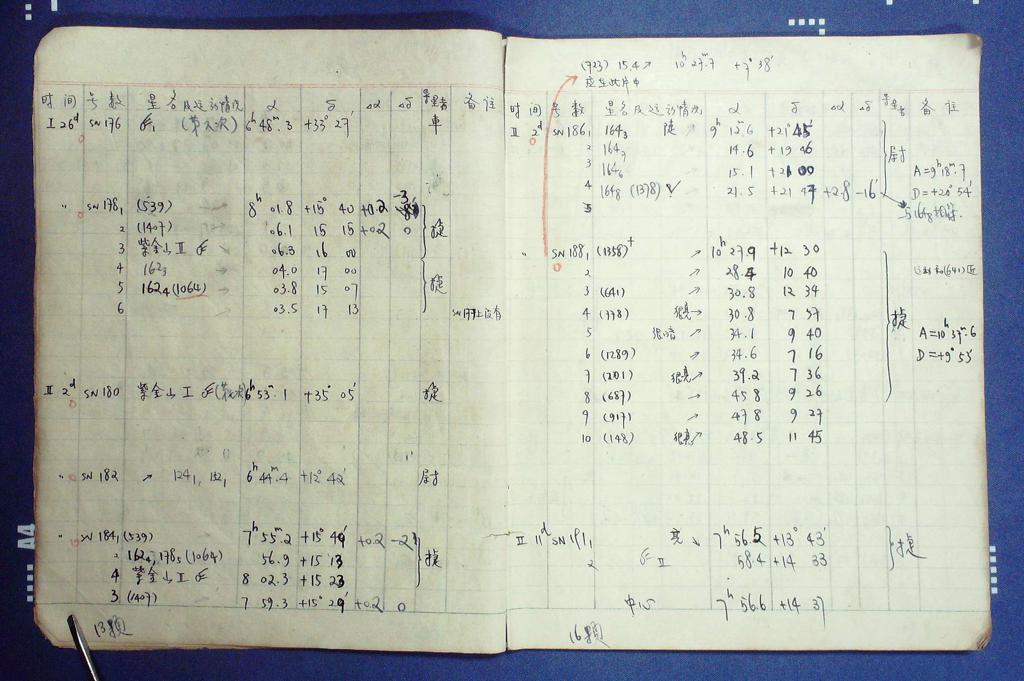 时间 号数 星名及运动情况 α δ Δα Δδ 备注
I 26d SN 176 (第六次) 6h 48m.3 +33° 27′ 車
" SN 178₁ (539) 8h 01.8 +15° 40 +0.2 -3 捷
2 (1407) 06.1 15 15 +0.2 0
3 紫金山 II 06.3 16 00
4 162₃ 04.0 17 00 捷
5 162₄ (1064) 03.8 15 07
6 03.5 17 13
II 2d SN 180 紫金山 I 6h 53m.1 +35° 05′ 捷
" SN 182 ↗ 124₁, 132₁ 6h 44m.4 +12° 42′
" SN 184₁ (539) 7h 55m.2 +15° 49′ +0.2 -2 捷
2 162₄, 178₅ (1064) 56.9 +15 13
4 紫金山 I 8 02.3 +15 23
3 (1407) 7 59.3 +15° 29′ +0.2 0
13颗
(723) 15.4 ↗ 10h 27m.7 +7° 38′
应在此片中
时间 号数 星名及运动情况 α δ Δα Δδ 备注
II 2d SN 186₁ 164₃ 9h 12m.6 +21° 45′
2 164₇ 14.6 +19 46
3 164₆ 15.1 +21 00 A=9h 18m.7
4 164₈ (1378) ✓ 21.5 +21 47 +2.8 -16′ D=+20° 54′
5 与164₈相符.
" SN 188₁ (1358)+ 10h 27.9 +12 30 捷
2 ↗ 28.4 10 40
3 (641) ↗ 30.8 12 34
4 (778) 很亮 ↗ 30.8 7 57
5 很暗 ↗ 34.1 9 40 A=10h 37m.6
6 (1289) ↗ 34.6 7 16 D=+9° 55′
7 (201) 很亮 ↗ 39.2 7 36
8 (687) ↗ 45.8 9 26
9 (917) ↗ 47.8 9 27
10 (148) 很亮 ↗ 48.5 11 45
II 11d SN 191₁ 亮 ↘ 7h 56.5 +13° 43′ 捷
2 II 58.4 +14 33
中心 7h 56.6 +14 37
16颗
A4